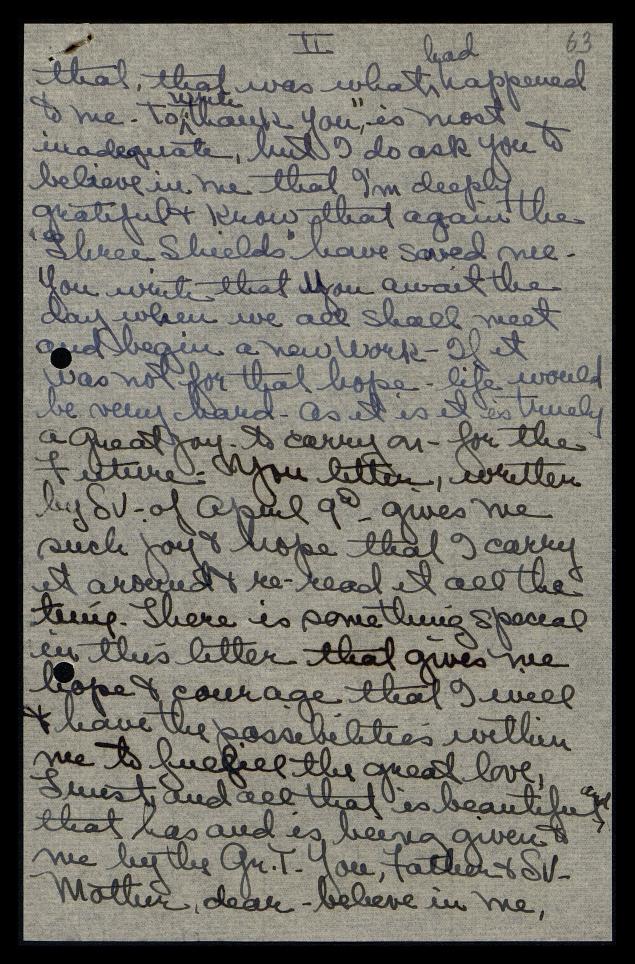 II
63
had
that, that was what happened
write
to me. To "thank you", is most
inadequate, but I do ask you to
believe in me that I'm deeply
grateful & know that again the
"Three Shields" have saved me.
You write that You await the
day when we all shall meet
and begin a new work - If it
was not for that hope - life would
be very hard - as it is it is truely
a great joy to carry on - for the
Future. Your letter, written
by SV - of April 9th - gives me
such joy & hope that I carry
it around & re-read it all the
time. There is something special
in this letter that gives me
hope & courage that I will
& have the possibilities within
me to fulfill the great love,
trust, and all that is beautiful and
that has and is being given to
me by the Gr. T. You, Father & SV -
Mother, dear - believe in me,